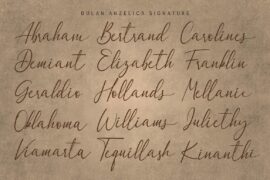 DULAN ANZELICA SIGNATURE
Abraham Bertrand Carolines
Demiant Elizabeth Franklin
Geraldio Hollands Mellanie
Oklahoma Williams Juliethy
Viamarta Tequillash Kinanthi